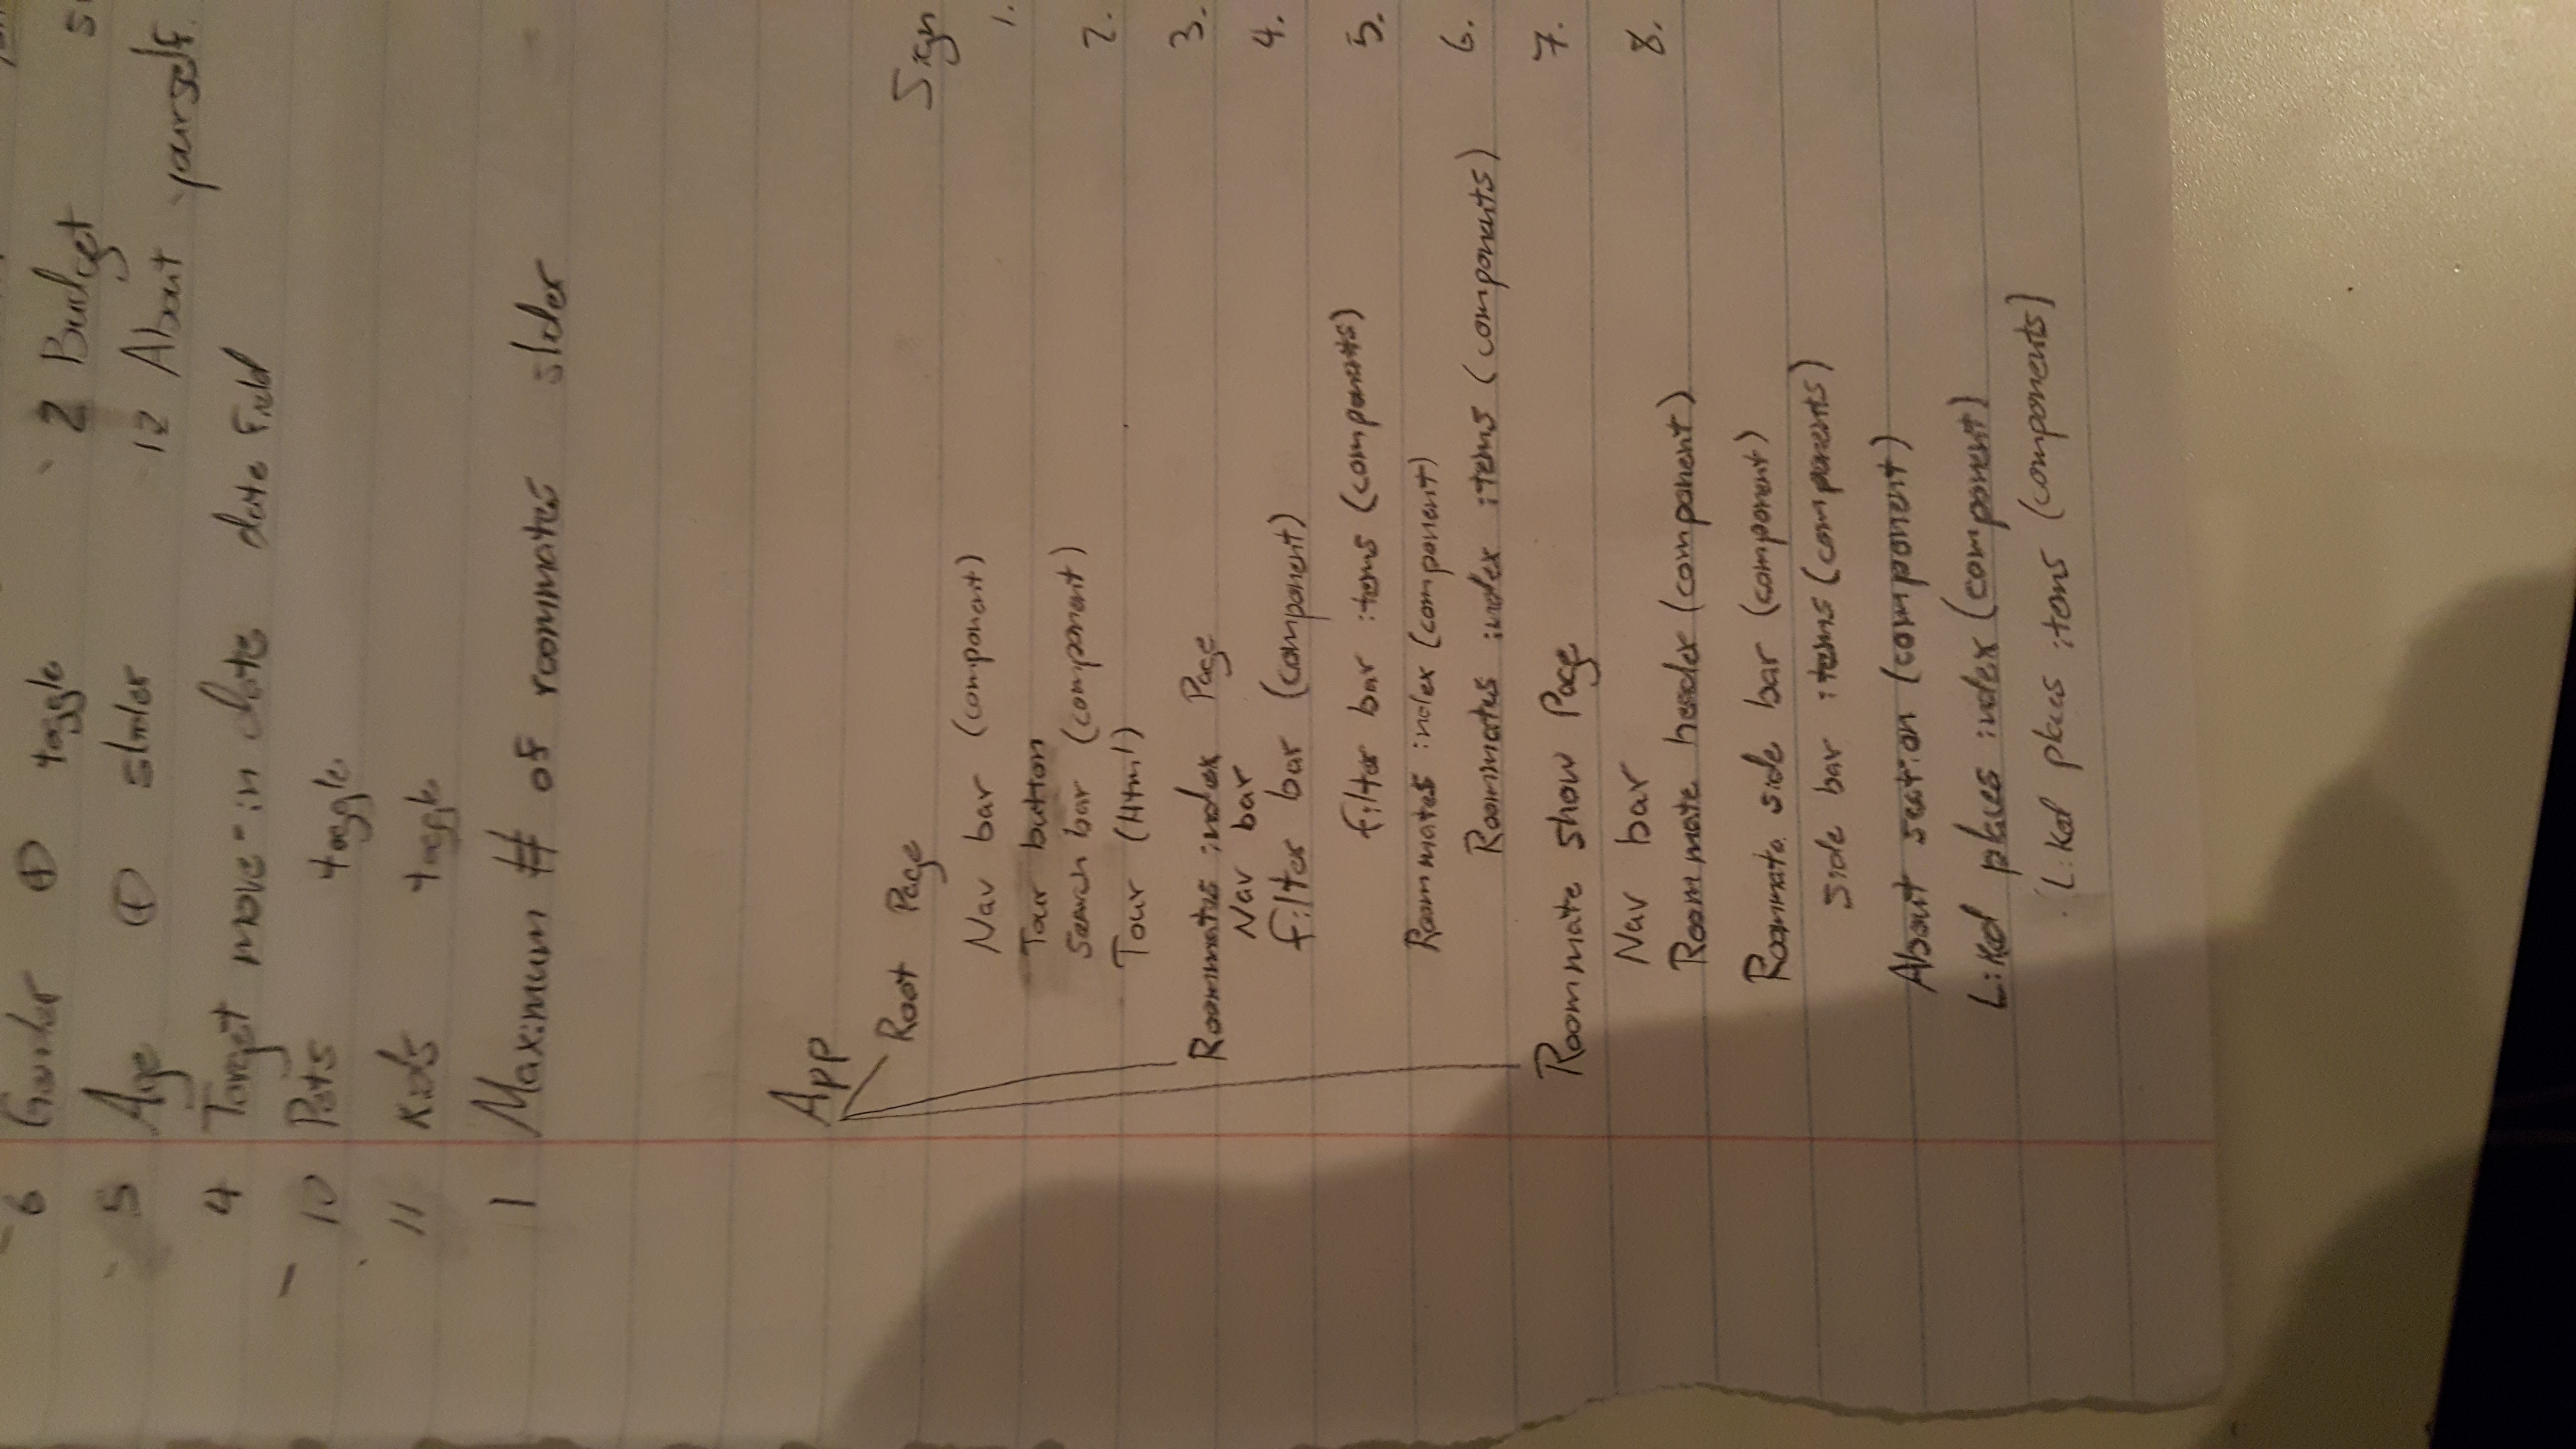 6 Gender + toggle 2 Budget
5 Age + slider 12 About yourself.
4 Target move-in date date field
10 Pets toggle
11 Kids toggle
1 Maximum # of roommates slider
App
Root Page
Sign
Nav bar (component)
1.
Tour button
Search bar (component)
2.
Tour (Html)
Roommates index Page
3.
Nav bar
Filter bar (component)
4.
Filter bar items (components)
5.
Roommates index (component)
Roommates index items (components)
6.
Roommate show Page
7.
Nav bar
8.
Roommate header (component)
Roommate side bar (component)
side bar items (components)
About section (component)
Liked places index (component)
Liked places items (components)